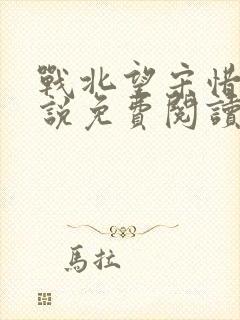 戰北望宋惜
說免費閱讀
馬拉